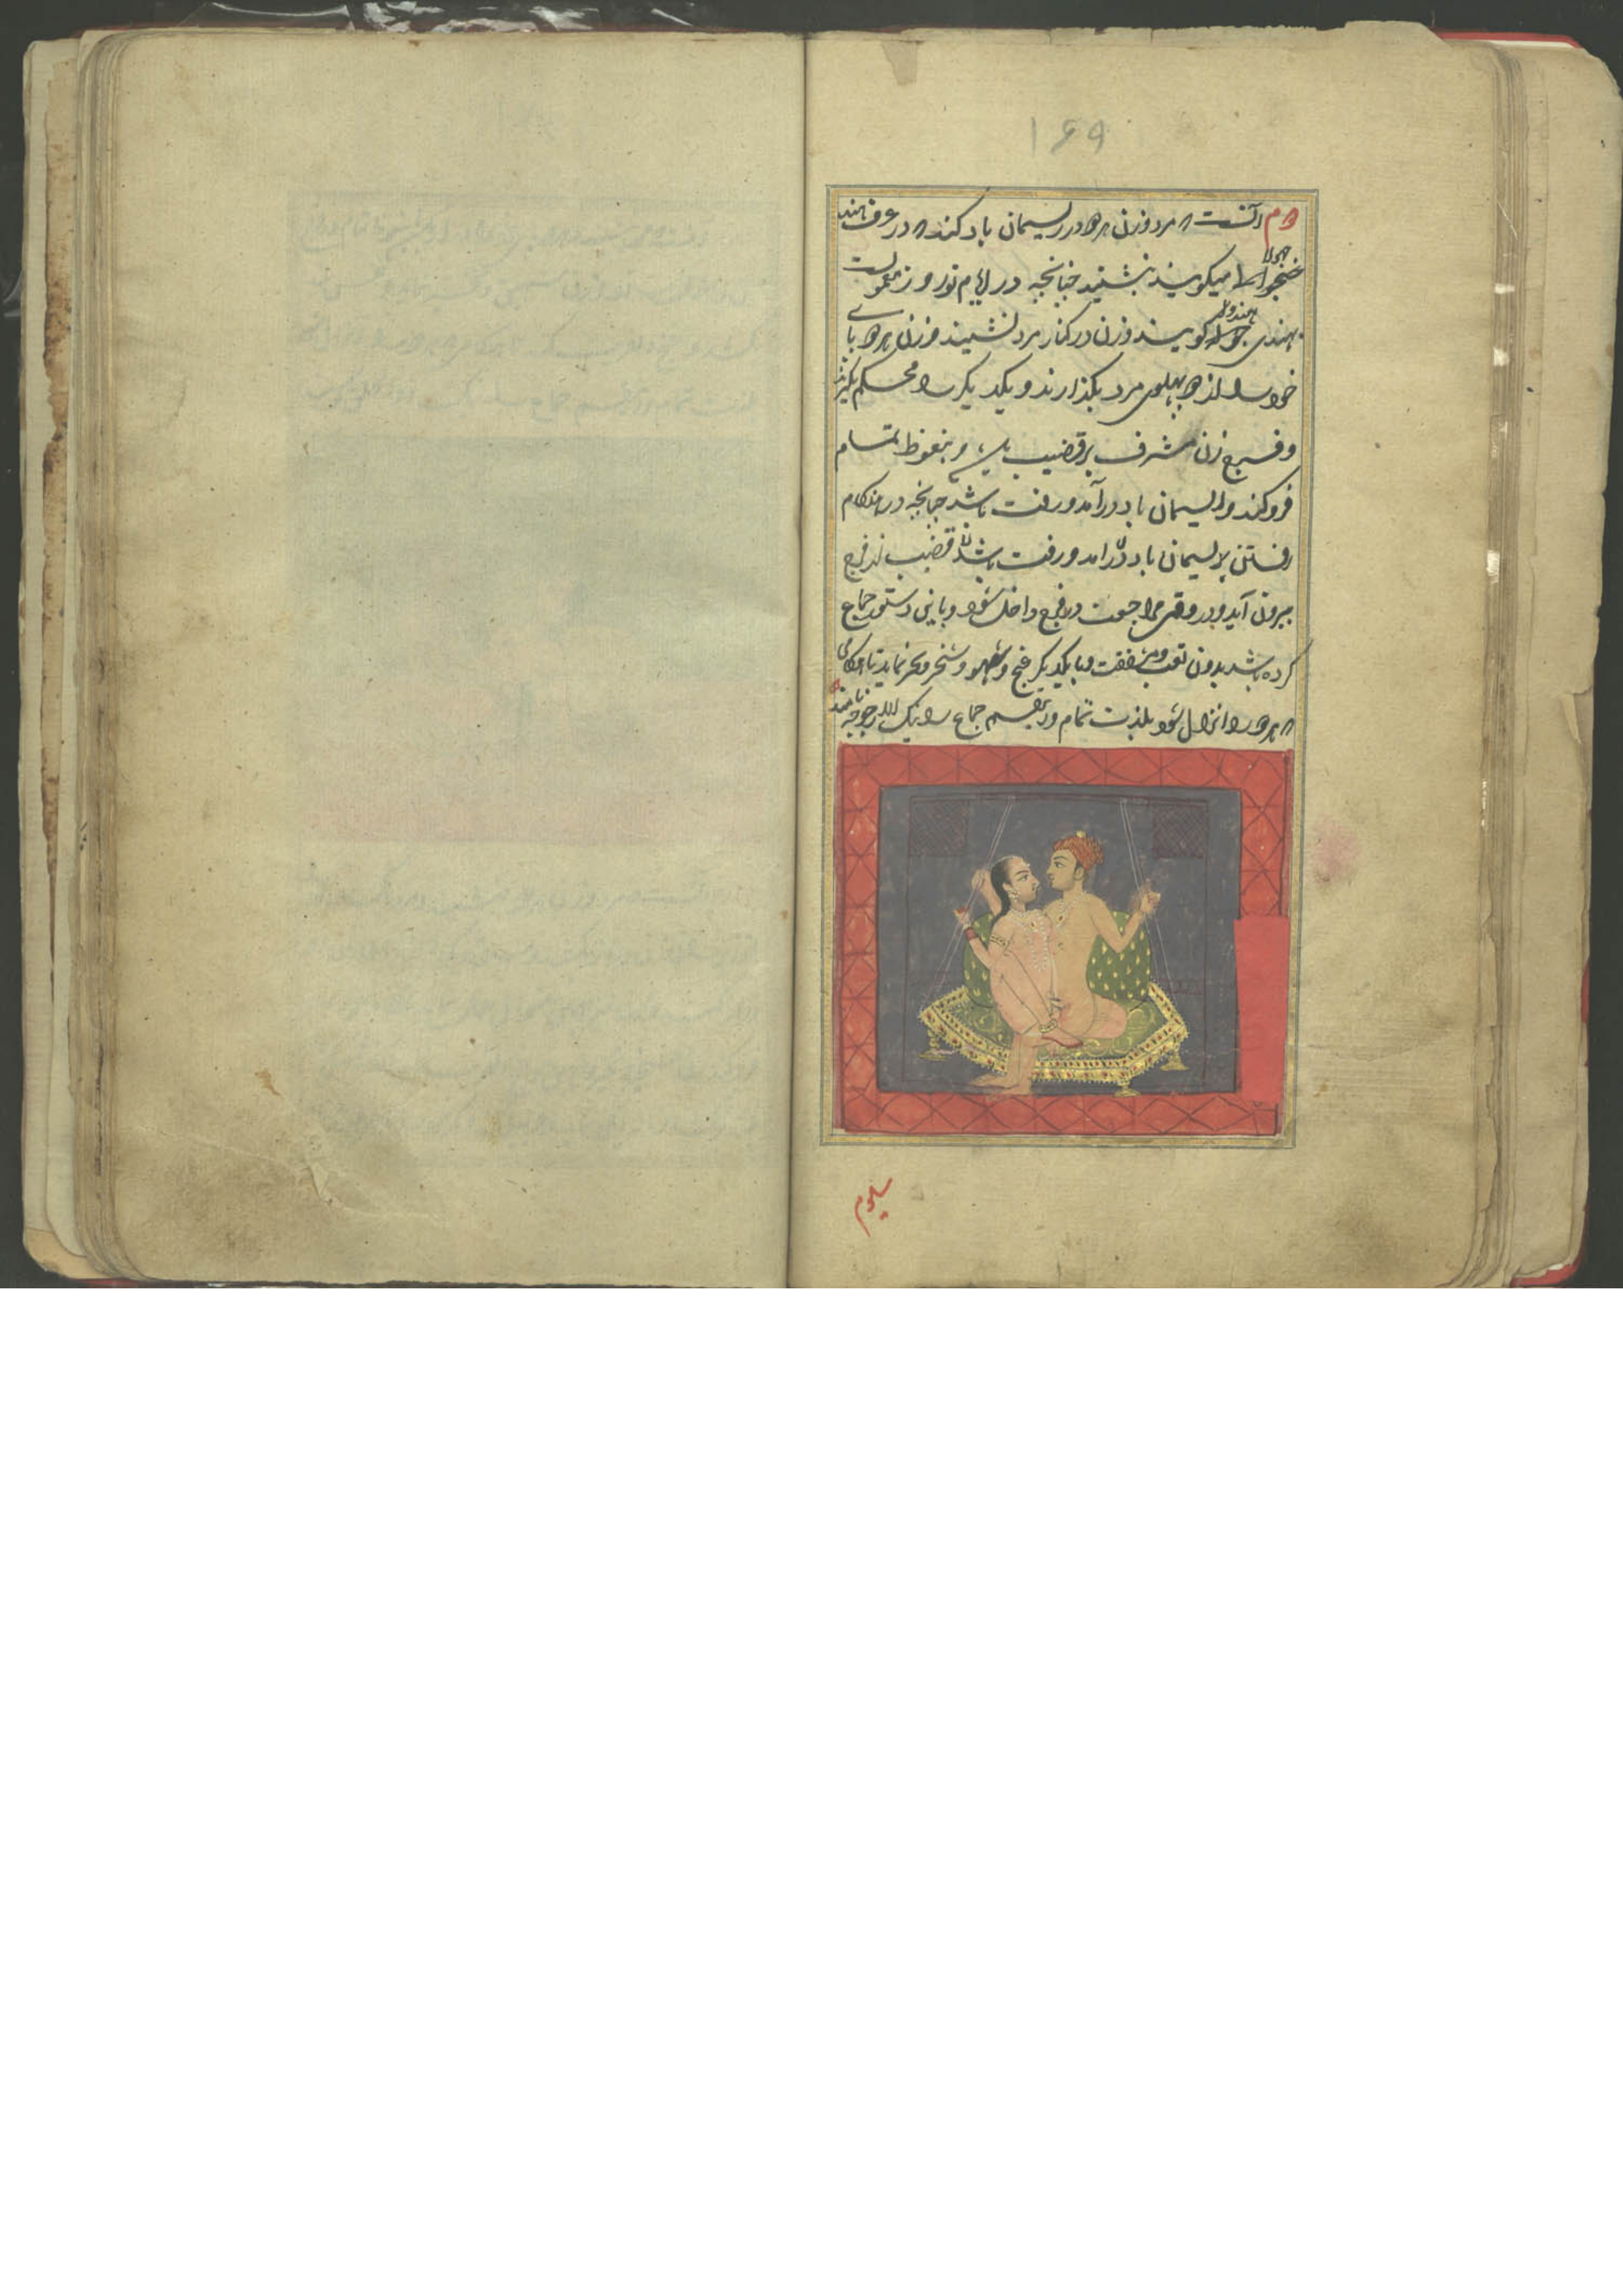 ۱۶۹
دوم آنست که مرد و زن هر دو در ریسمان باد کنند که در عرف هند
جهولا
میکویند بنشینند چنانچه در ایام نوروز معمولست
هندوله
بهندی کویند و زن در کنار مرد نشیند و زن هر دو پای
خود را از دو پهلوی مرد بکذارند و یکدیکر را محکم بکیرند
و فرج زن مشرف بر قضیب و بنعوظ تمام
فرو کند و ریسمان باد در آمد و رفت باشد چنانچه در هنکام
رفتن ریسمان باد در آمد و رفت باشد قضیب از فرج
بیرون آید و در وقت مراجعت در فرج داخل شود و باین دستور جماع
کرده باشد بدون تعب و مشقت و با یکدیکر غنج و نماید تا هنکامی
که هر دو را انزال شود بلذت تمام و این قسم جماع را نامند
سیوم